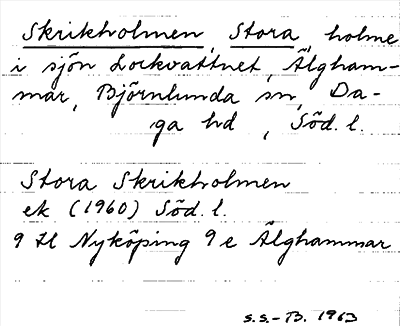 Skrikholmen, Stora, holme
i sjön Lockvattnet, Älgham-
mar, Björnlunda sn, Da-
ga hd, Söd. l.
Stora Skrikholmen
ek (1960) Söd. l.
9 H Nyköping 9 e Älghammar
S.S.-B. 1963